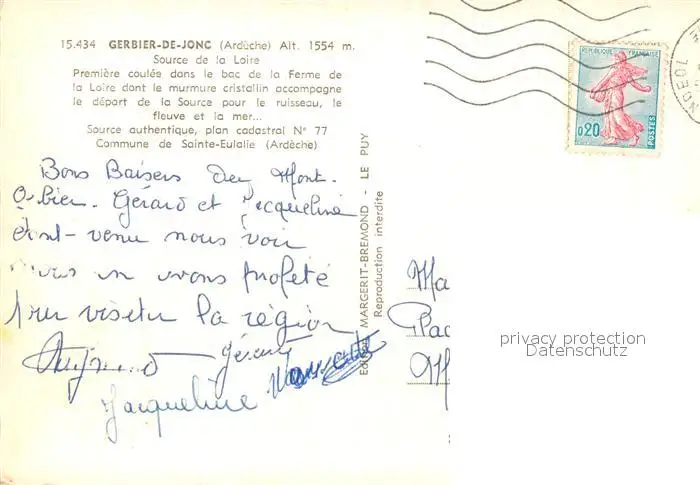 15.434 GERBIER-DE-JONC (Ardèche) Alt. 1554 m.
Source de la Loire
Première coulée dans le bac de la Ferme de
la Loire dont le murmure cristallin accompagne
le départ de la Source pour le ruisseau, le
fleuve et la mer...
Source authentique, plan cadastral N° 77
Commune de Sainte-Eulalie (Ardèche)
Bons Baisers Mont.
Gérard et Jacqueline
venu nous voir
avons profité
visiter la région
Gérard
Jacqueline
MARGERIT-BREMOND - LE PUY
Reproduction interdite
REPUBLIQUE FRANÇAISE
0,20
POSTES
Ma
Plac
privacy protection
Datenschutz